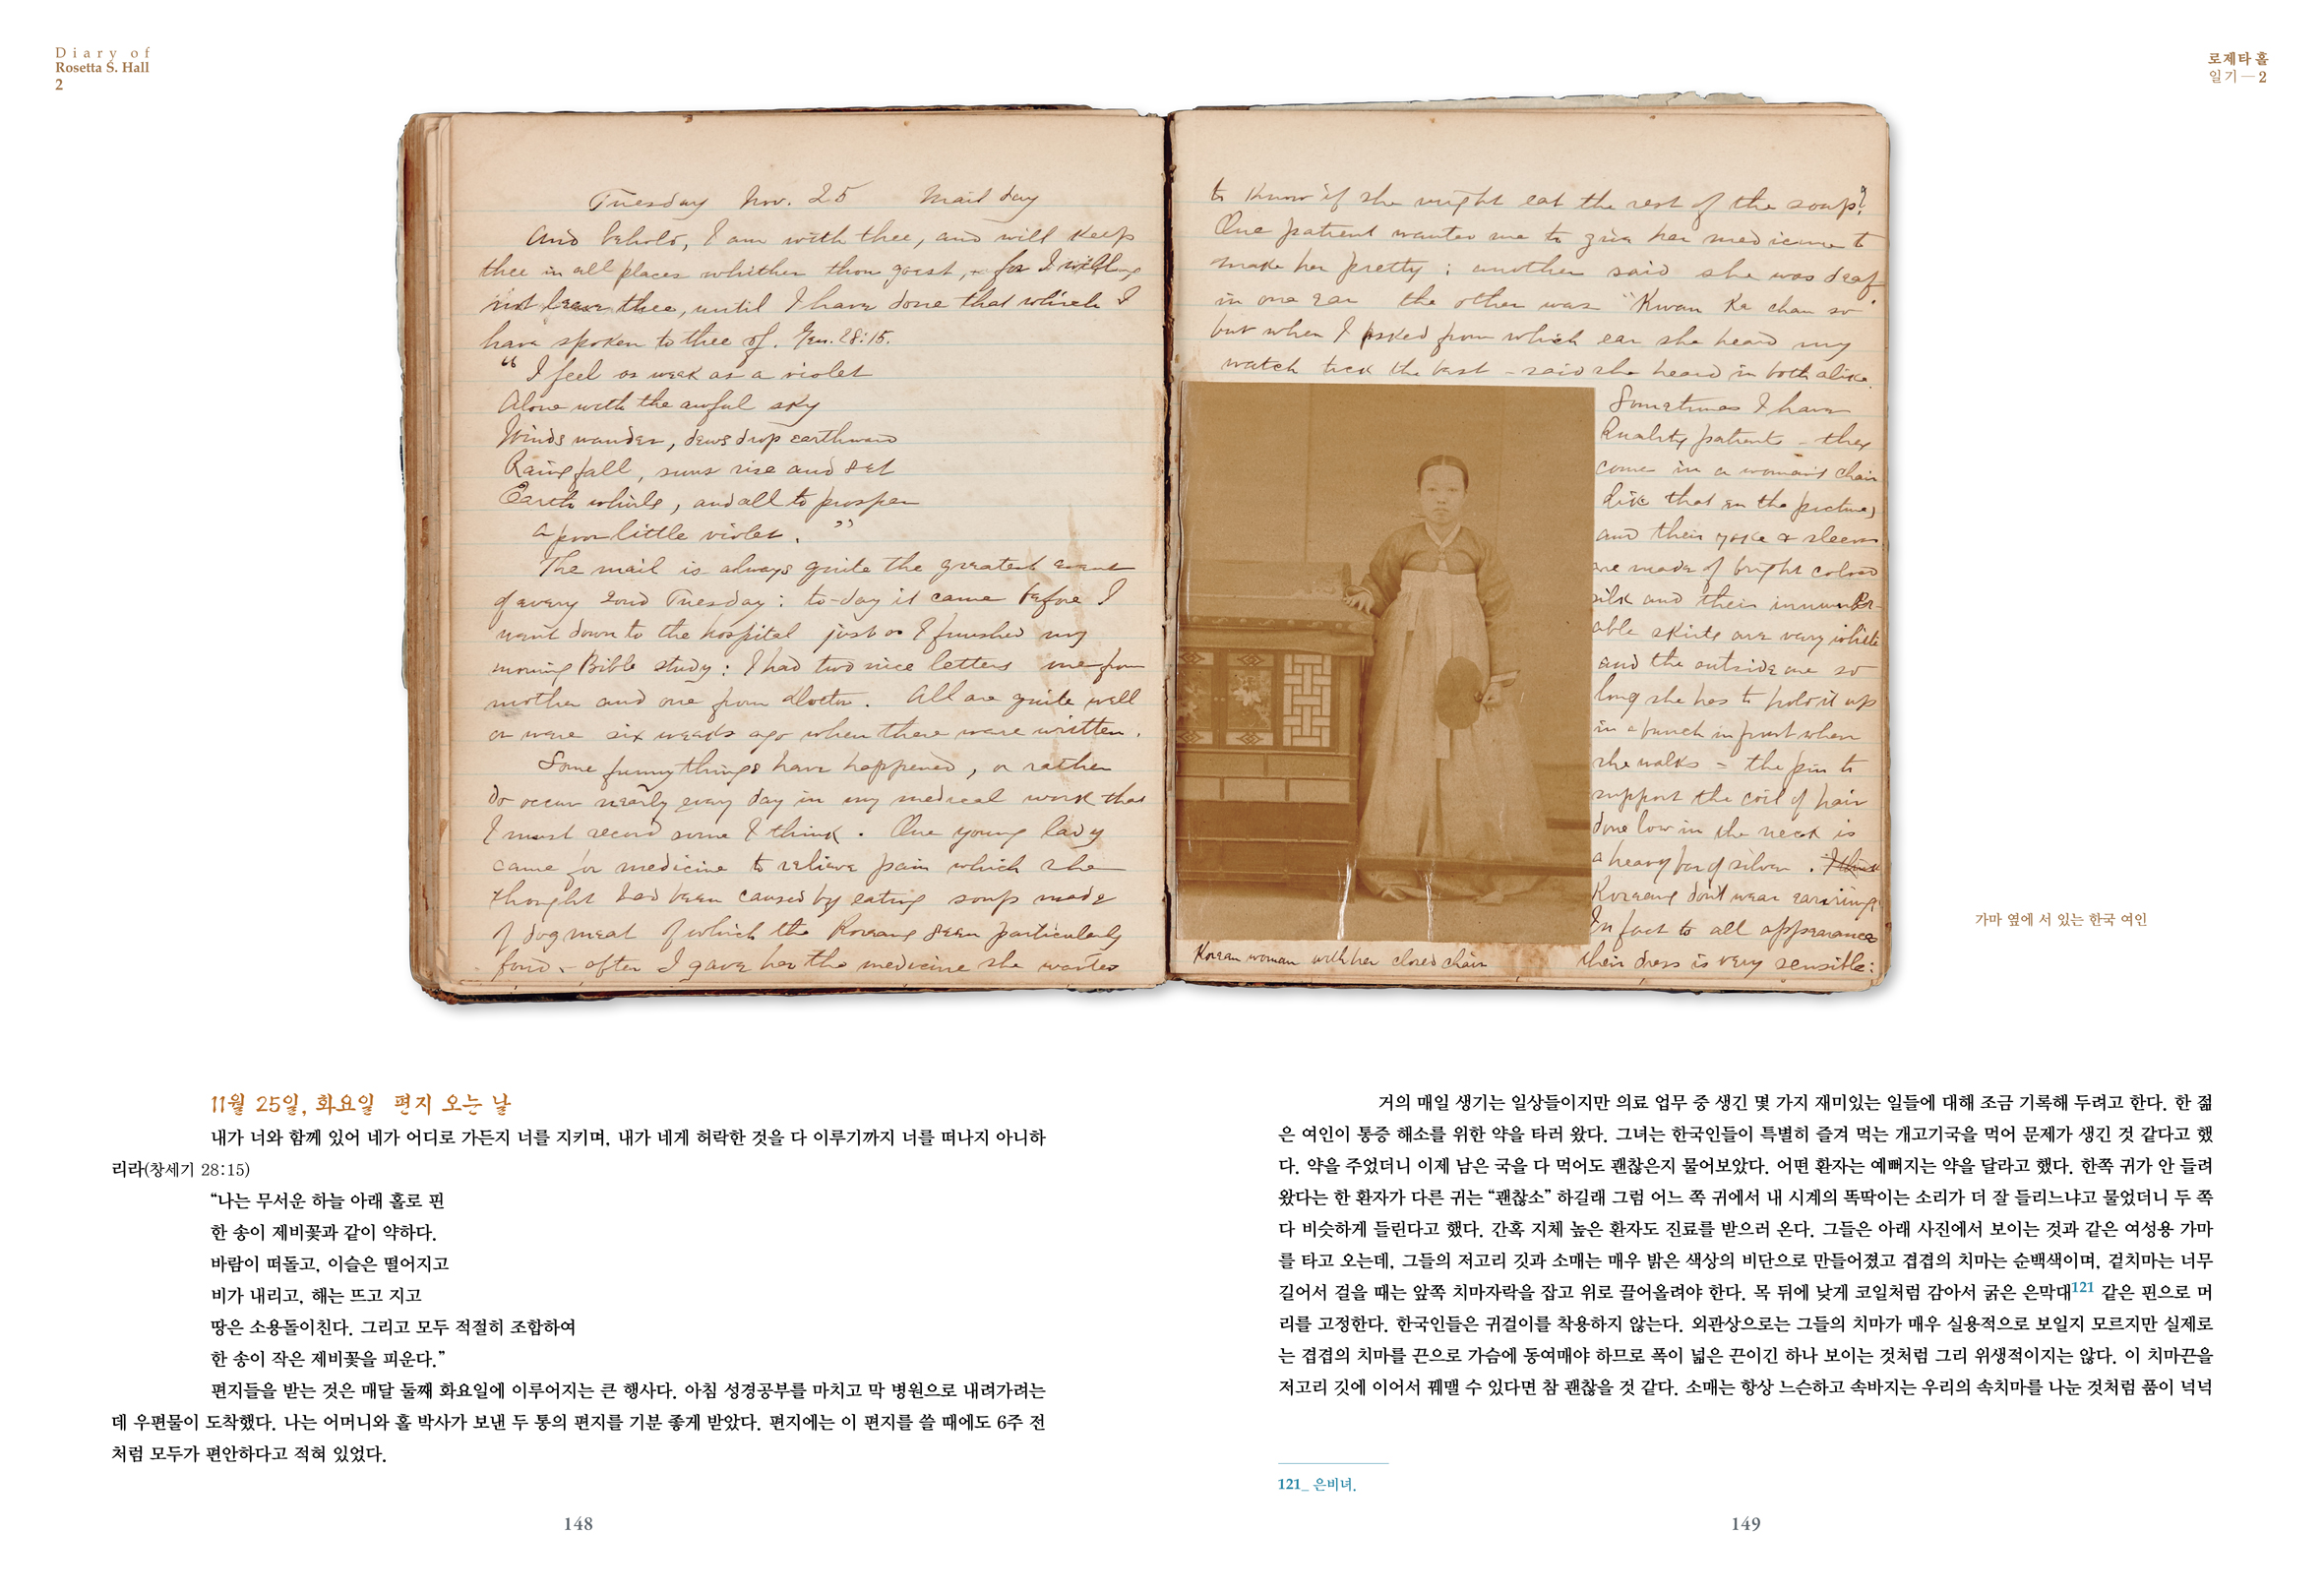 Diary of
Rosetta S. Hall
2
로제타 홀
일기—2
Tuesday Nov. 25 Mail day
And behold, I am with thee, and will keep
thee in all places whither thou goest, for I will
not leave thee, until I have done that which I
have spoken to thee of. Gen. 28:15.
“I feel as weak as a violet
Alone with the awful sky
Winds wander, dews drop earthward
Rains fall, suns rise and set
Earth whirls, and all to prosper
a poor little violet.”
The mail is always quite the greatest event
of every 2ond Tuesday: to-day it came before I
went down to the hospital just as I finished my
morning Bible study: I had two nice letters one from
mother and one from doctor. All are quite well
or were six weeks ago when there were written.
Some funny things have happened, or rather
do occur nearly every day in my medical work that
I must record some I think. One young lady
came for medicine to relieve pain which she
thought had been caused by eating soup made
of dog meat of which the Koreans seem particularly
fond - after I gave her the medicine she wanted
to know if she might eat the rest of the soup?
One patient wanted me to give her medicine to
make her pretty; another said she was deaf
in one ear the other was "Kwan Ka chan so"
but when I asked from which ear she heard my
watch tick the best - said she heard in both alike.
Sometimes I have
Quality patients - they
come in a woman's chair
like that in the picture,
and their yoke & sleeves
are made of bright colored
silk and their innumer-
able skirts are very white
and the outside one so
long she has to hold it up
in a bunch in front when
she walks - the pin to
support the coil of hair
done low in the neck is
a heavy bar of silver. I think
Koreans don't wear earrings.
In fact to all appearances
their dress is very sensible:
Korean woman with her closed chair
가마 옆에 서 있는 한국 여인
11월 25일, 화요일 편지 오는 날
내가 너와 함께 있어 네가 어디로 가든지 너를 지키며, 내가 네게 허락한 것을 다 이루기까지 너를 떠나지 아니하
리라(창세기 28:15)
“나는 무서운 하늘 아래 홀로 핀
한 송이 제비꽃과 같이 약하다.
바람이 떠돌고, 이슬은 떨어지고
비가 내리고, 해는 뜨고 지고
땅은 소용돌이친다. 그리고 모두 적절히 조합하여
한 송이 작은 제비꽃을 피운다.”
편지들을 받는 것은 매달 둘째 화요일에 이루어지는 큰 행사다. 아침 성경공부를 마치고 막 병원으로 내려가려는
데 우편물이 도착했다. 나는 어머니와 홀 박사가 보낸 두 통의 편지를 기분 좋게 받았다. 편지에는 이 편지를 쓸 때에도 6주 전
처럼 모두가 편안하다고 적혀 있었다.
148
거의 매일 생기는 일상들이지만 의료 업무 중 생긴 몇 가지 재미있는 일들에 대해 조금 기록해 두려고 한다. 한 젊
은 여인이 통증 해소를 위한 약을 타러 왔다. 그녀는 한국인들이 특별히 즐겨 먹는 개고기국을 먹어 문제가 생긴 것 같다고 했
다. 약을 주었더니 이제 남은 국을 다 먹어도 괜찮은지 물어보았다. 어떤 환자는 예뻐지는 약을 달라고 했다. 한쪽 귀가 안 들려
왔다는 한 환자가 다른 귀는 “괜찮소” 하길래 그럼 어느 쪽 귀에서 내 시계의 똑딱이는 소리가 더 잘 들리느냐고 물었더니 두 쪽
다 비슷하게 들린다고 했다. 간혹 지체 높은 환자도 진료를 받으러 온다. 그들은 아래 사진에서 보이는 것과 같은 여성용 가마
를 타고 오는데, 그들의 저고리 깃과 소매는 매우 밝은 색상의 비단으로 만들어졌고 겹겹의 치마는 순백색이며, 겉치마는 너무
길어서 걸을 때는 앞쪽 치마자락을 잡고 위로 끌어올려야 한다. 목 뒤에 낮게 코일처럼 감아서 굵은 은막대121 같은 핀으로 머
리를 고정한다. 한국인들은 귀걸이를 착용하지 않는다. 외관상으로는 그들의 치마가 매우 실용적으로 보일지 모르지만 실제로
는 겹겹의 치마를 끈으로 가슴에 동여매야 하므로 폭이 넓은 끈이긴 하나 보이는 것처럼 그리 위생적이지는 않다. 이 치마끈을
저고리 깃에 이어서 꿰맬 수 있다면 참 괜찮을 것 같다. 소매는 항상 느슨하고 속바지는 우리의 속치마를 나눈 것처럼 품이 넉넉
121_ 은비녀.
149